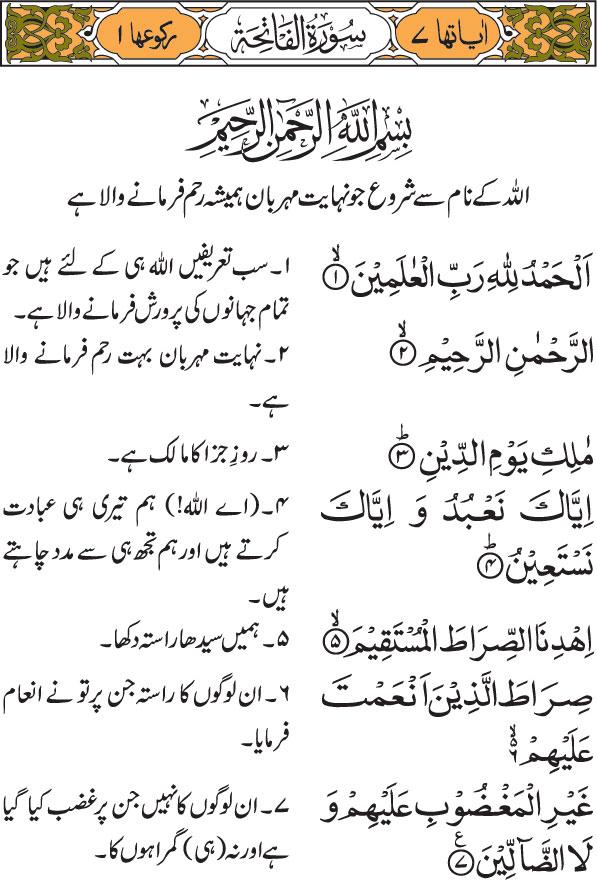 اٰیاتھا ۷ سُوْرَۃُ الْفَاتِحَۃِ رکوعھا ۱
بِسْمِ اللّٰهِ الرَّحْمٰنِ الرَّحِیْمِ
اللہ کے نام سے شروع جو نہایت مہربان ہمیشہ رحم فرمانے والا ہے
اَلْحَمْدُ لِلّٰهِ رَبِّ الْعٰلَمِیْنَۙ۝۱
۱۔ سب تعریفیں اللہ ہی کے لئے ہیں جو
تمام جہانوں کی پرورش فرمانے والا ہے۔
الرَّحْمٰنِ الرَّحِیْمِۙ۝۲
۲۔ نہایت مہربان بہت رحم فرمانے والا
ہے۔
مٰلِكِ یَوْمِ الدِّیْنِؕ۝۳
۳۔ روزِ جزا کا مالک ہے۔
اِیَّاكَ نَعْبُدُ وَ اِیَّاكَ
نَسْتَعِیْنُؕ۝۴
۴۔ (اے اللہ!) ہم تیری ہی عبادت
کرتے ہیں اور ہم تجھ ہی سے مدد چاہتے
ہیں۔
اِهْدِنَا الصِّرَاطَ الْمُسْتَقِیْمَۙ۝۵
۵۔ ہمیں سیدھا راستہ دکھا۔
صِرَاطَ الَّذِیْنَ اَنْعَمْتَ
عَلَیْهِمْۙ۝۶
۶۔ ان لوگوں کا راستہ جن پر تو نے انعام
فرمایا۔
غَیْرِ الْمَغْضُوْبِ عَلَیْهِمْ وَ
لَا الضَّآلِّیْنَ۝۷ع
۷۔ ان لوگوں کا نہیں جن پر غضب کیا گیا
ہے اور نہ (ہی) گمراہوں کا۔